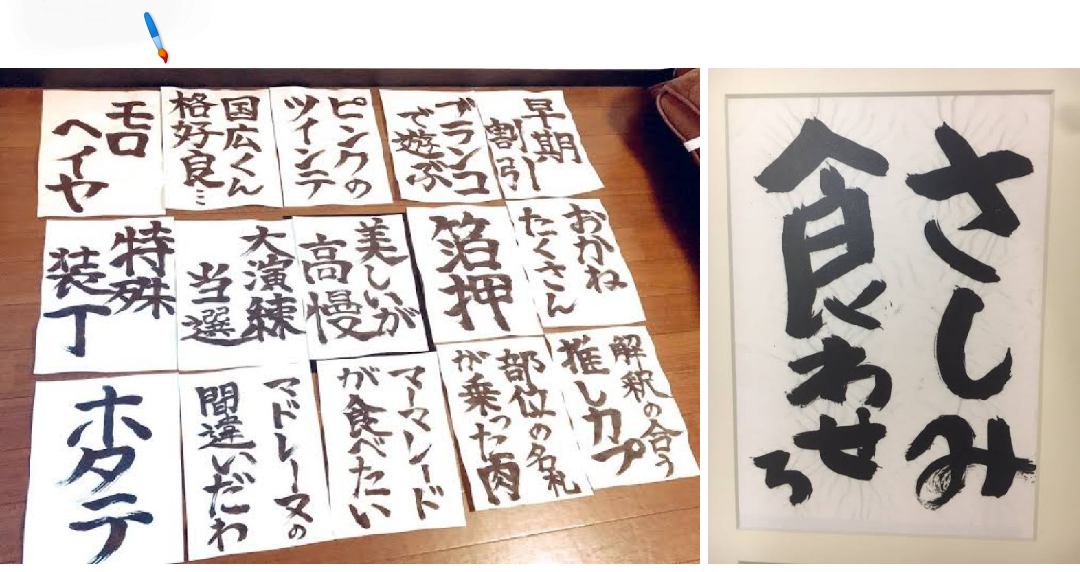 早期
割引
ブランコ
で遊ぶ
ピンクの
ツインテ
国広くん
格好良…
モロ
ヘイヤ
おかね
たくさん
箔押
美しいが
高慢
大演練
当選
特殊
装丁
解釈の合う
推しカプ
部位の名札
が乗った肉
マーマレード
が食べたい
マドレーヌの
間違いだわ
ホタテ
さしみ
食わせろ